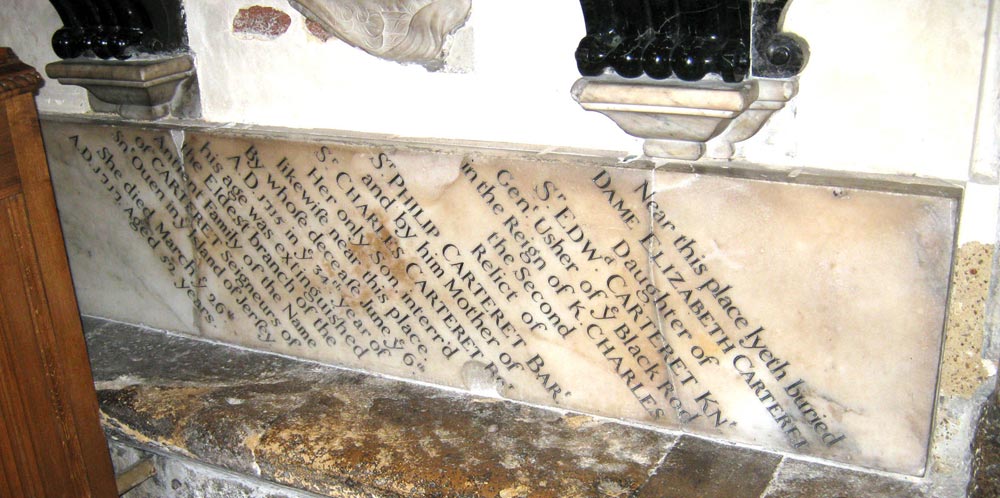 Near this place lyeth buried
DAME ELIZABETH CARTERET
Daughter of
Sʳ EDWᵈ CARTERET KNᵗ
Gen: Usher of yᵉ Black Rod
in the Reign of K. CHARLES
the Second
Relict of
Sʳ PHILIP CARTERET BARᵗ
and by him Mother of
Sʳ CHARLES CARTERET Bᵗ
Her only Son interr'd
likewiſe near this place.
By whoſe deceaſe June yᵉ 6ᵗʰ
A.D. 1715 in yᵉ year of
his age was extinguished
the Eldest branch of the
Antient Family of the Name
of CARTERET Seigneurs of
Sⁿ Ouen in yᵉ Island of Jerſey
She died March yᵉ 26ᵗʰ
A.D. 1717. Aged 52 years.